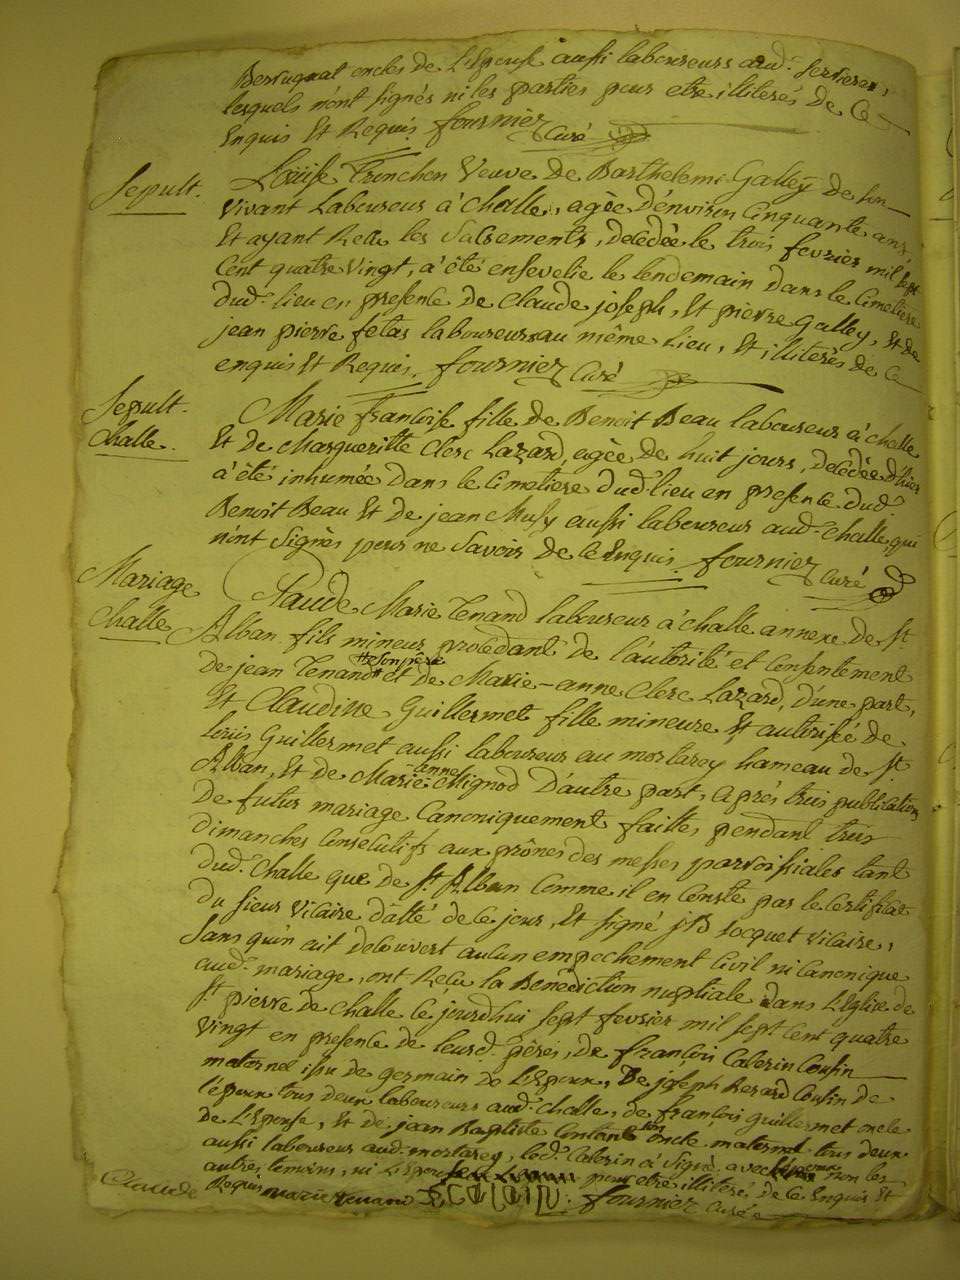 Berruquat oncles de L'Epouse aussi laboureurs aud. servieres,
lesquels n'ont signés ni les parties pour etre illiterés de Ce
Enquis Et Requis. fournier Curé
Sepult. Loüise Trinchon Veuve de Barthelemi Galley de son
Vivant Laboureur à Challe, agée d'environ Cinquante ans,
Et ayant Reçu les Sacrements, decédée le trois fevrier mil sept
Cent quatre Vingt, a été ensevelie le lendemain dans le Cimetiere
dud. lieu en presence de Claude joseph, Et pierre Galley, Et de
jean pierre fetas laboureurs au même Lieu, Et illiterés de Ce
enquis Et Requis. fournier Curé
Sepult. Challe. Marie Françoise fille de Benoit Beau laboureur à Challe
Et de Margueritte Clerc Lazard, agée de huit jours, decédée d'hier
a été inhumée Dans le Cimetiere dud. lieu en presence dud.
Benoit Beau Et de jean Musy aussi laboureur aud. Challe qui
n'ont Signés pour ne Savoir de Ce Enquis. fournier Curé
Mariage Challe Claude Marie Tenand laboureur à Challe annexe de St.
Alban fils mineur procédant de l'autorité et Consentement
de jean Tenand et de Marie-anne Clerc Lazard, d'une part,
Et Claudine Guillermet fille mineure Et autorisée de
Louis Guillermet aussi laboureur au mortarey hameau de St.
Alban, Et de Marie-Mignod D'autre part, après trois publications
De futur mariage Canoniquement faittes pendant trois
Dimanches Consecutifs aux prônes des messes parroissiales tant
dud. Challe que de St. Alban Comme il en Conste par le Certificat
du Sieur Vicaire datté de Ce jour, Et signé jB Locquet Vicaire,
Sans qu'on ait decouvert aucun empechement Civil ni Canonique
aud. mariage, ont Reçu la Benediction nuptiale dans L'Eglise de
St. pierre de Challe Ce jourdhui sept fevrier mil sept Cent quatre
Vingt en presence de leurs d. péres, de françois Caterin Cousin
maternel issu de germain de L'Epoux, De joseph Berard Cousin de
l'époux tous deux laboureurs aud. Challe, de françois guillermet oncle
de L'Epouse, Et de jean Baptiste Contant son oncle maternel tous deux
aussi laboureurs aud. mortarey, led. Caterin a Signé avec l'époux non les
autres temoins, ni L'Epouse pour etre illiterés de Ce Enquis Et
Requis Claude marie tenand fournier Curé